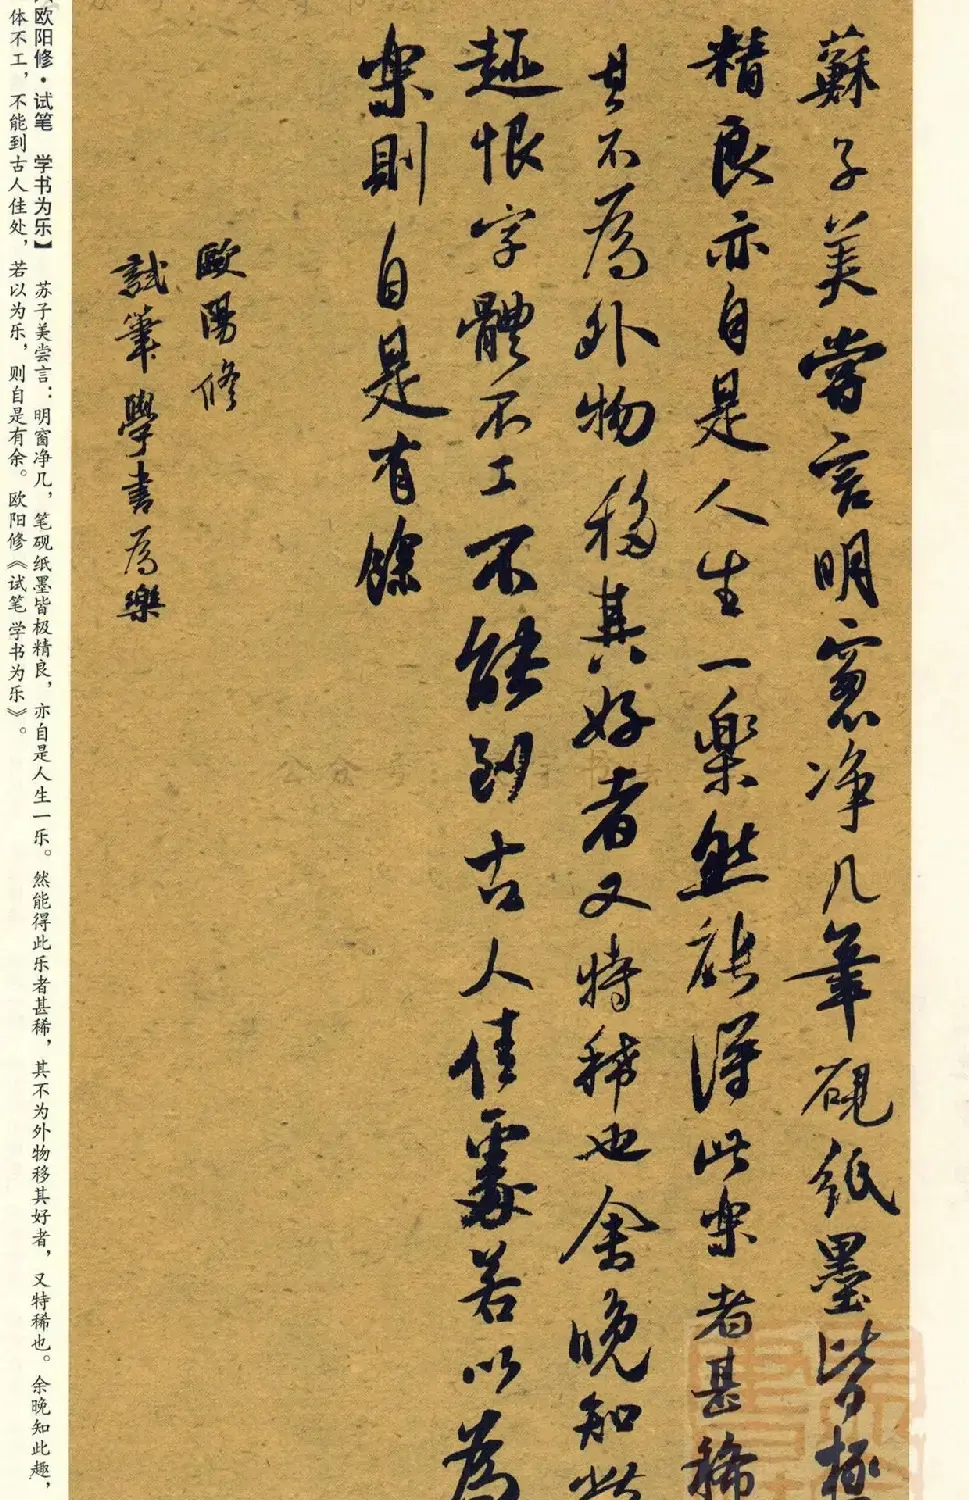 蘇子美嘗言明窗净几筆硯紙墨皆極
精良亦自是人生一樂然能得此樂者甚稀
其不爲外物移其好者又特稀也余晚知此
趣恨字體不工不能到古人佳處若以爲
樂則自是有餘
歐陽修
試筆學書爲樂
欧阳修·试笔 学书为乐】 苏子美尝言：明窗净几，笔砚纸墨皆极精良，亦自是人生一乐。然能得此乐者甚稀，其不为外物移其好者，又特稀也。余晚知此趣，
体不工，不能到古人佳处，若以为乐，则自是有余。欧阳修《试笔 学书为乐》。